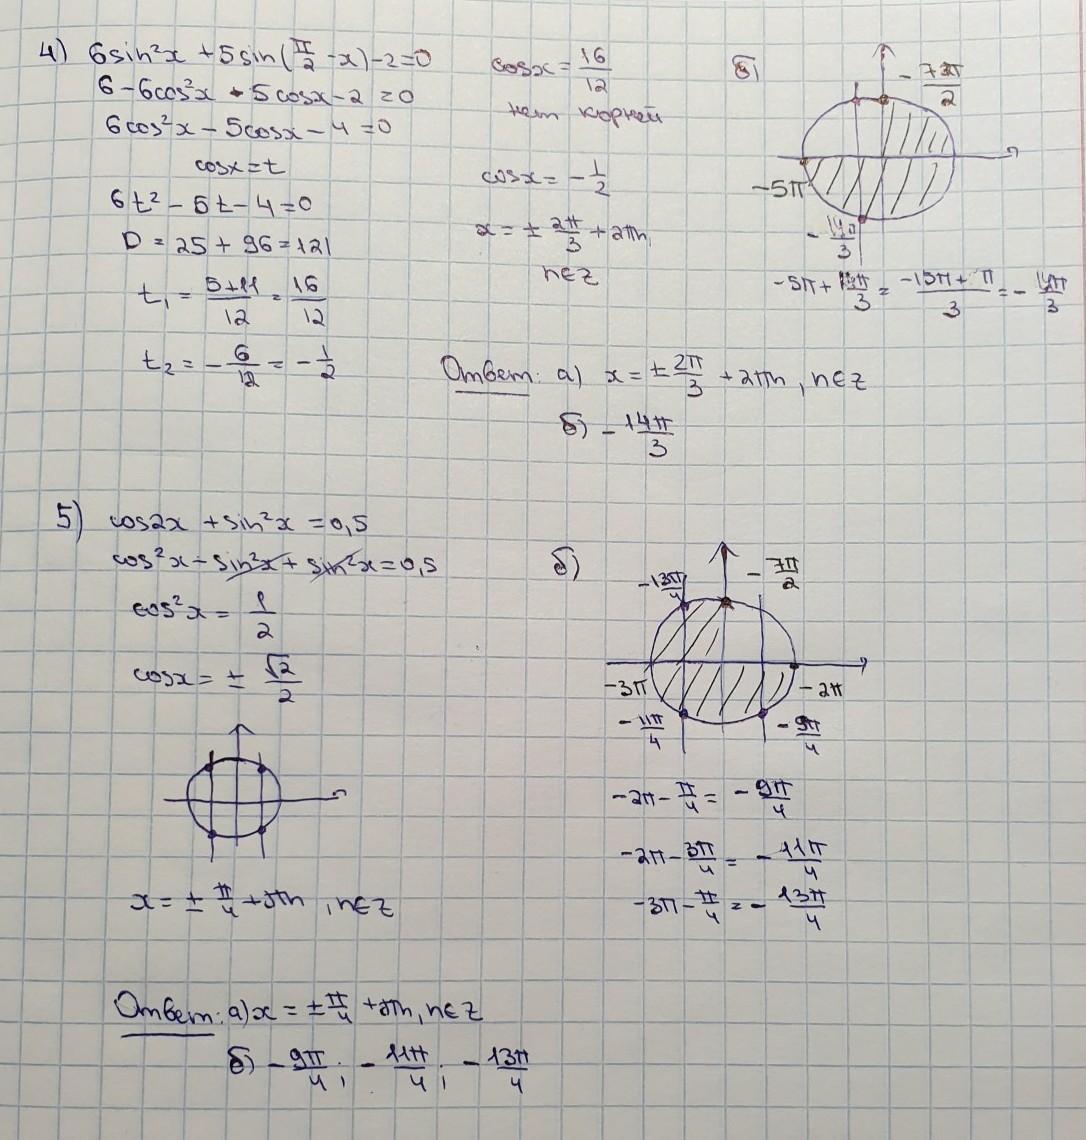 4) 6sin²x + 5sin(π/2 - x) - 2 = 0
6 - 6cos²x + 5cosx - 2 = 0
6cos²x - 5cosx - 4 = 0
cosx = t
6t² - 5t - 4 = 0
D = 25 + 96 = 121
t₁ = 5+11/12 = 16/12
t₂ = - 6/12 = - 1/2
cosx = 16/12
нет корней
cosx = - 1/2
x = ± 2π/3 + 2πn,
n∈Z
б)
- 7π/2
-5π
- 14π/3
-5π + π/3 = -15π + π/3 = - 14π/3
Ответ: а) x = ± 2π/3 + 2πn, n∈Z
б) - 14π/3
5) cos2x + sin²x = 0,5
cos²x - sin²x + sin²x = 0,5
cos²x = 1/2
cosx = ± √2/2
x = ± π/4 + πn, n∈Z
б)
- 13π/4
- 7π/2
-3π
- 2π
- 11π/4
- 9π/4
-2π - π/4 = - 9π/4
-2π - 3π/4 = - 11π/4
-3π - π/4 = - 13π/4
Ответ: а) x = ± π/4 + πn, n∈Z
б) - 9π/4; - 11π/4; - 13π/4